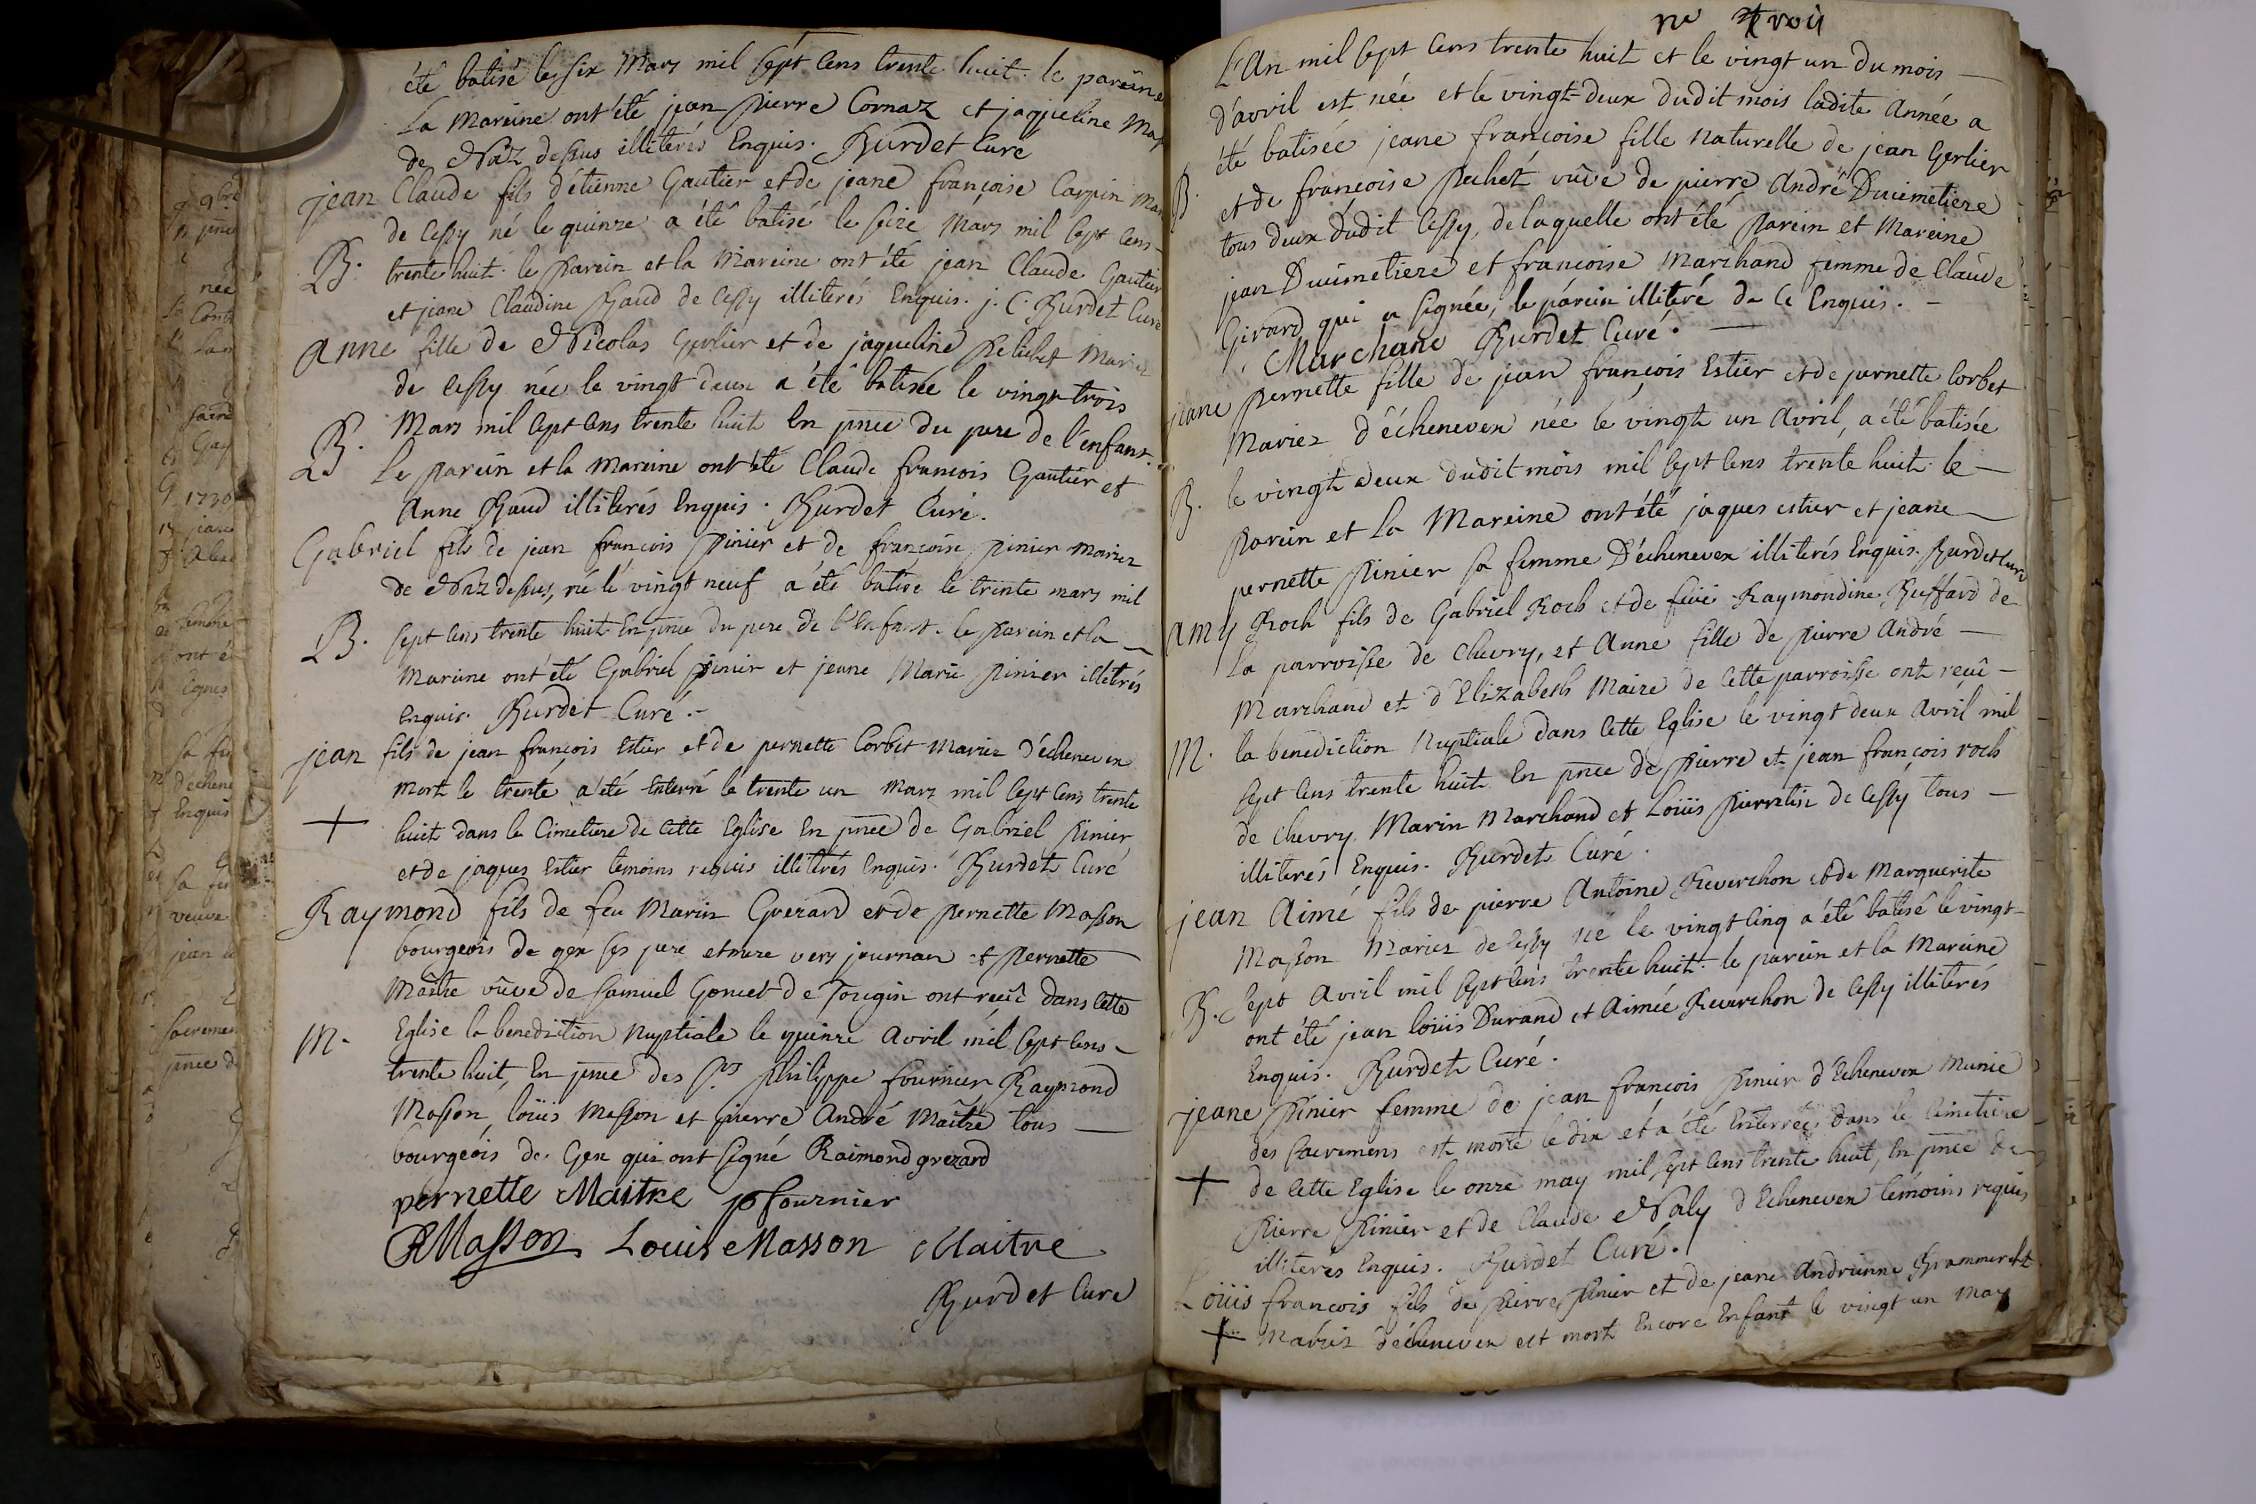 été batisé le six Mars mil sept cens trente huit. le parein et
La Mareine ont été jean pierre Cornaz et jaqueline
de Naz dessus illiterés Enquis. Burdet Curé
jean Claude fils d'étienne Gautier et de jeane françoise Carpin
de Cessy né le quinze a été batisé le seize Mars mil sept cens
B. trente huit. le Parein et la Mareine ont été jean Claude Gautier
et jeane Claudine Baud de Cessy illiterés Enquis. j. C. Burdet Curé
Anne fille de Nicolas Gerlier et de jaqueline Pelichet Mariez
de Cessy née le vingt deux a été batisée le vingt trois
B. Mars mil sept cens trente huit En pnce du pere de l'enfant.
Le parein et la Mareine ont été Claude francois Gautier et
Anne Baud illiterés Enquis. Burdet Curé.
Gabriel fils de jean françois Pinier et de françoise pinier Mariez
de Naz dessus, né le vingt neuf a été batisé le trente mars mil
B. sept cens trente huit En pnce du pere de l'Enfant. le Parein et la
Mareine ont été Gabriel Pinier et jeane Marie Pinier illitrés
Enquis. Burdet Curé.
jean fils de jean françois Estier et de pernette Corbet Mariez d'échenevex
mort le trente, a été Enterré le trente un Mars mil sept cens trente
+ huit dans le Cimetiere de Cette Eglise En pnce de Gabriel Pinier
et de jaques Estier temoins requis illiterés Enquis. Burdet Curé
Raymond fils de feu Marin Grezard et de Pernette Masson
bourgeois de gex ses pere et mere vers journan et Pernette
Maître vûve de Samuel Goncet de Tougin ont reçû dans Cette
M. Eglise la benediction Nuptiale le quinze Avril mil sept cens
trente huit, En pnce des Srs philippe fournier Raymond
Masson, loüis Masson et pierre André Maître tous
bourgeois de Gex qui ont signé Raimond grezard
pernette Maitre p fournier
RMasson Louis Masson Maitre
Burdet Curé
L'An mil sept Cens trente huit et le vingt un du mois
d'avril est née et le vingt deux dudit mois ladite Année a
été batisée jeane francoise fille Naturelle de jean Gerlier
B. et de francoise Pechet vûve de pierre André Ducimetiere
tous deux dudit Cessy, de laquelle ont été Parein et Mareine
jean Ducimetiere et francoise Marchand femme de Claude
Girard qui a signée, le párein illiteré de Ce Enquis.
Marchand Burdet Curé.
jeane Pernette fille de jean françois Estier et de pernette Corbet
Mariez d'écheneven née le vingt un Avril, a été batisée
B. le vingt deux dudit mois mil sept cens trente huit. le
Parein et La Mareine ont été jaques estier et jeane
pernette Pinier sa femme D'échenevex illiterés Enquis. Burdet Curé
Amy Roch fils de Gabriel Roch et de feüe Raymondine Buffard de
la parroisse de Chevry, et Anne fille de Pierre André
Marchand et d'Elizabeth Maire de Cette parroisse ont reçû
M. la benediction Nuptiale dans Cette Eglise le vingt deux Avril mil
sept cens trente huit En pnce de Pierre et jean françois roch
de Chevry Marin Marchand et Loüis de Cessy tous
illiterés Enquis. Burdet Curé.
jean Aimé fils de pierre Antoine Reverchon et de Marguerite
Masson Mariez de Cessy né le vingt cinq a été batisé le vingt
B. sept Avril mil sept cens trente huit. le parein et la Mareine
ont été jean loüis Durand et Aimée Reverchon de Cessy illiterés
Enquis. Burdet Curé.
jeane Pinier femme de jean françois Pinier d'Echenevex Munie
des Sacremens est morte le dix et a été Enterrée dans le Cimetiere
+ de Cette Eglise le onze may mil sept cens trente huit, En pnce de
Pierre Pinier et de Claude Naly d'Echenevex témoins requis
illiterés Enquis. Burdet Curé.
Loüis francois fils de Pierre Pinier et de jeane Andrienne
+ Mariez d'échenevex est mort Encore Enfant le vingt un May